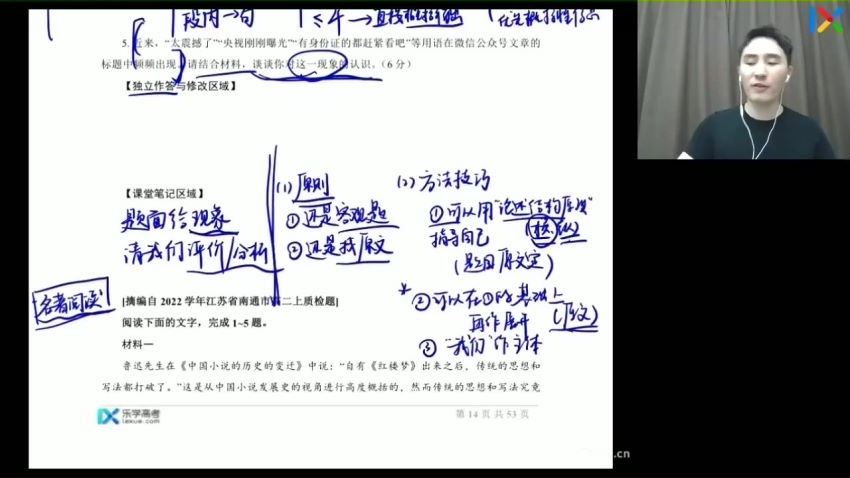 段内一句 ≤4→直接
5. 近来，“太震撼了”“央视刚刚曝光”“有身份证的都赶紧看吧”等用语在微信公众号文章的
标题中频频出现。请结合材料，谈谈你对这一现象的认识。（6 分）
【独立作答与修改区域】
【课堂笔记区域】
题面给现象
请我们评价/分析
(1) 原则
①还是客观题
②还是找原文
(2) 方法技巧
①可以用“论述结构
指导自己
(题目 原文定)
②可以在①的基础上
再作展开
(原文)
③“我们”作主体
名著阅读
[摘编自 2022 学年江苏省南通市高二上质检题]
阅读下面的文字，完成 1~5 题。
材料一
鲁迅先生在《中国小说的历史的变迁》中说：“自有《红楼梦》出来之后，传统的思想和
写法都打破了。”这是从中国小说发展史的视角进行高度概括的，然而传统的思想和写法究竟
乐学高考
lexue.com
第 14 页 共 53 页
.cn